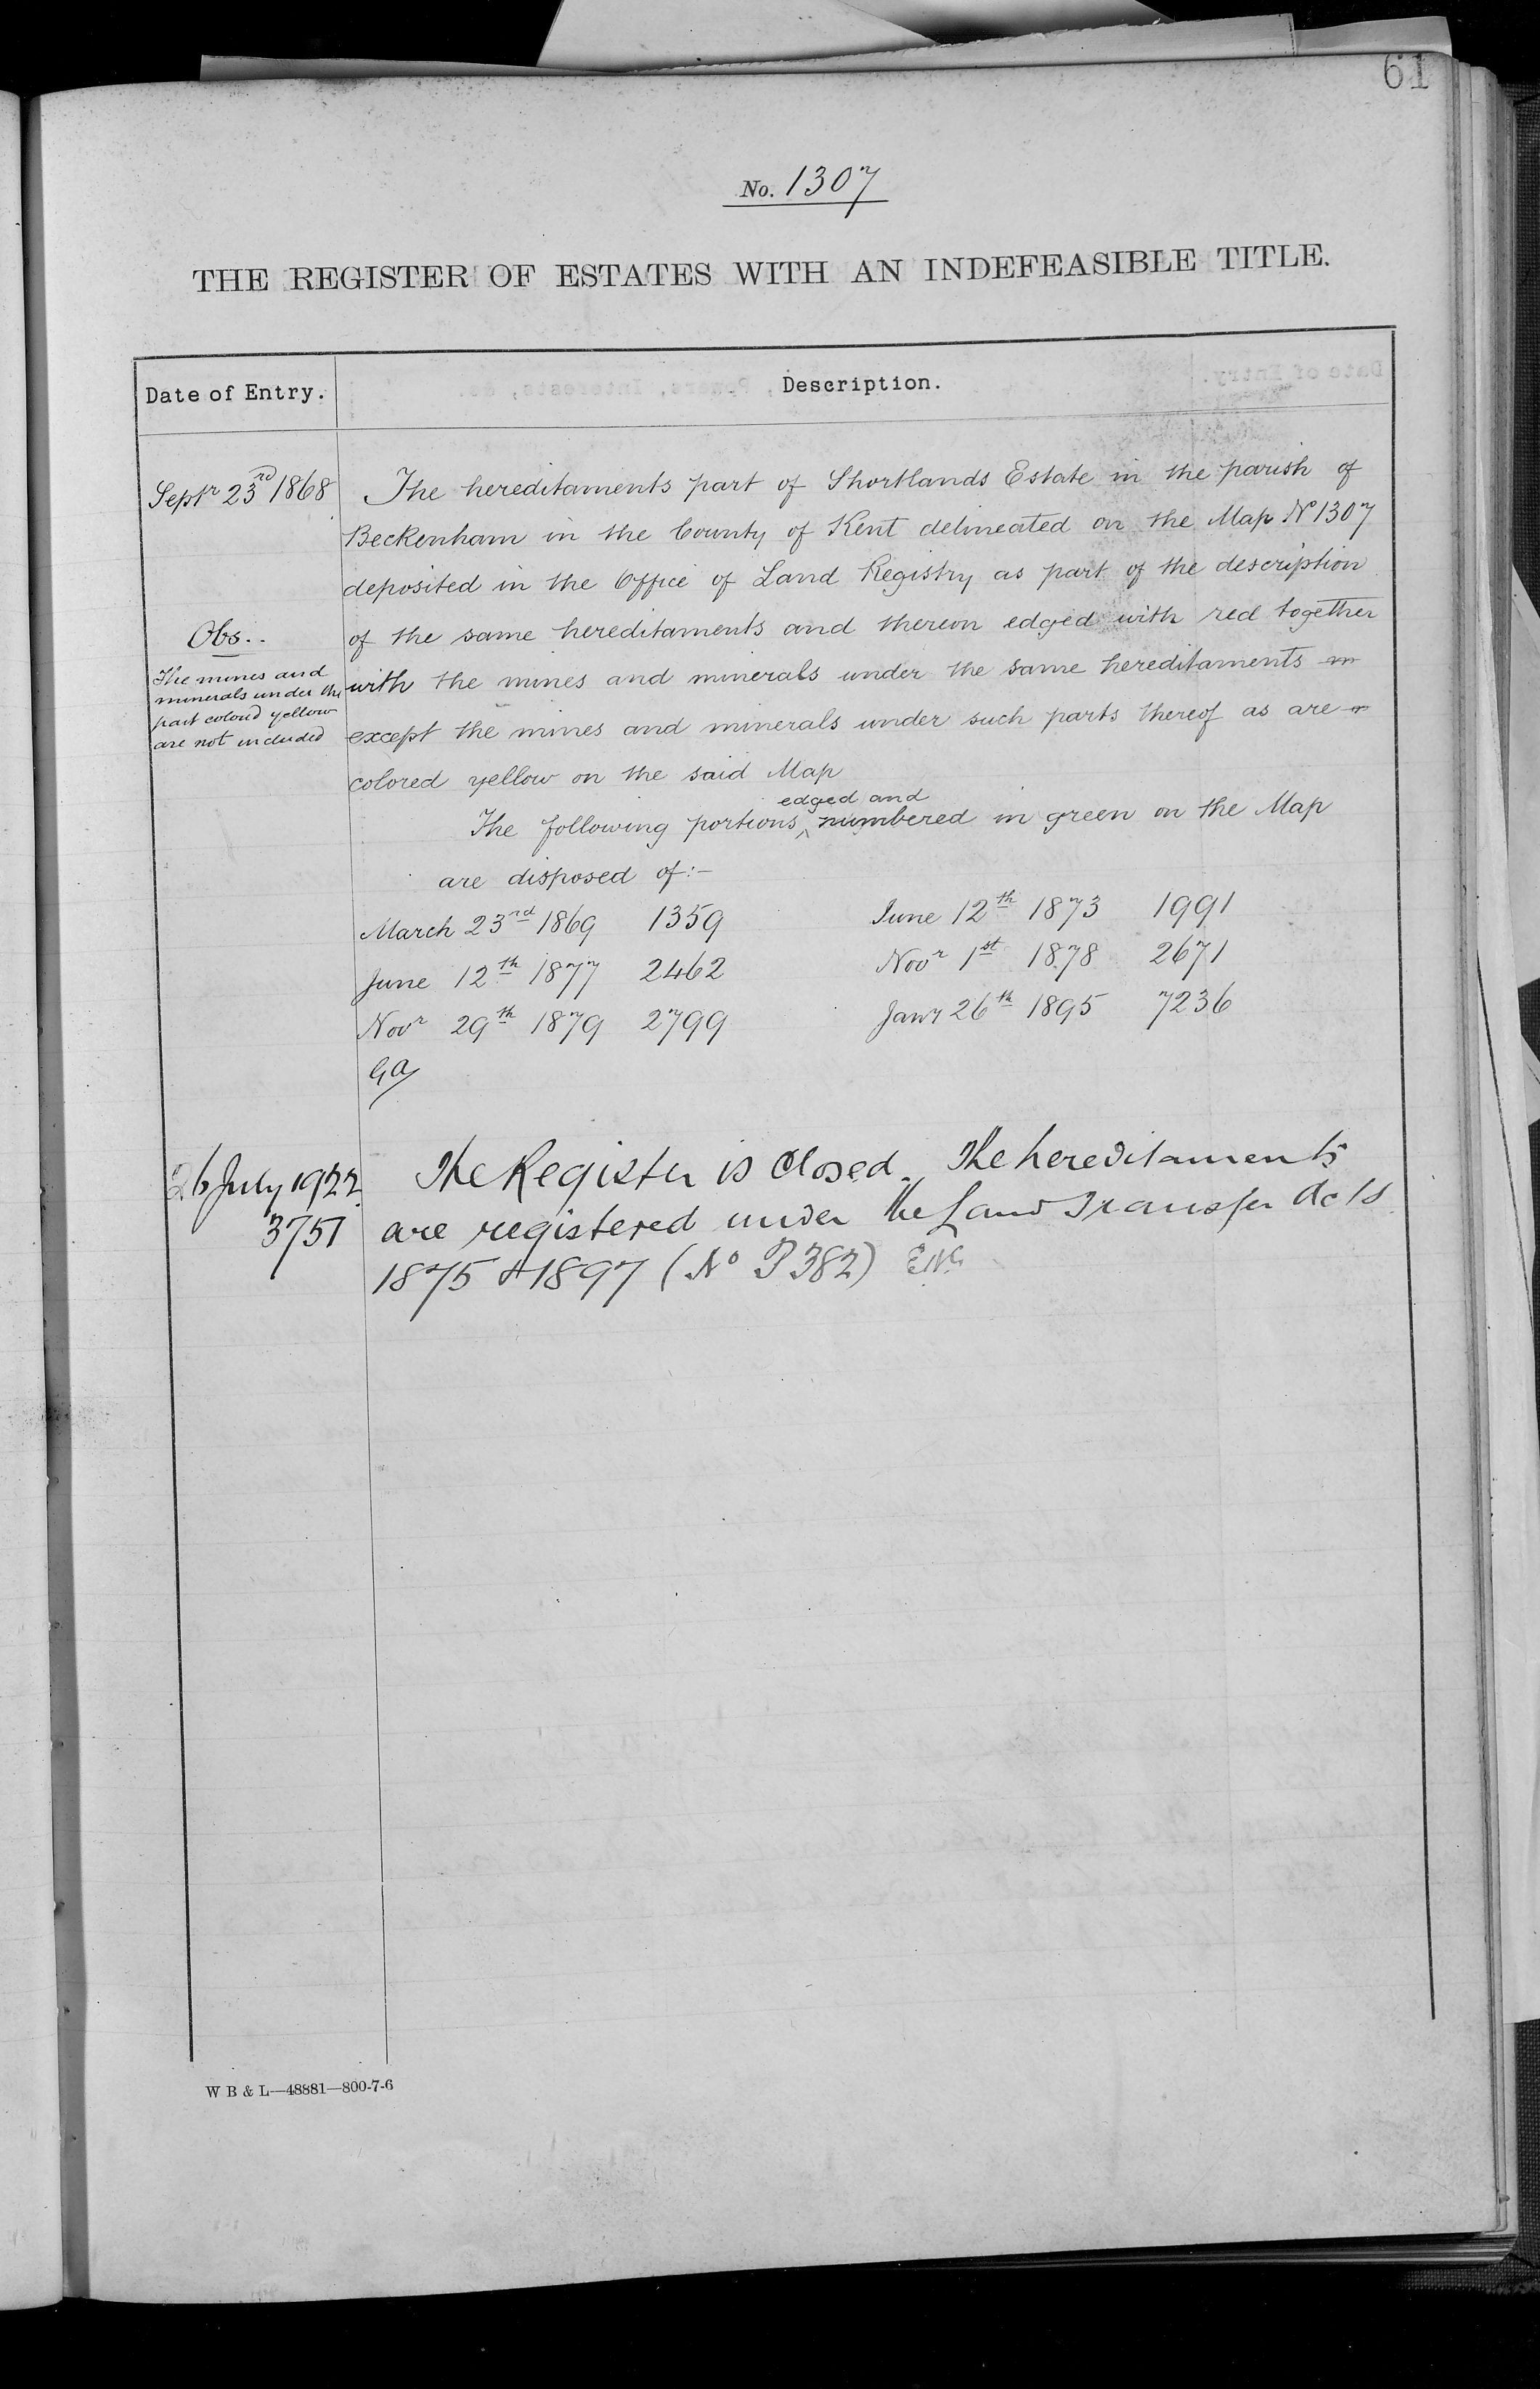 61
No. 1307
THE REGISTER OF ESTATES WITH AN INDEFEASIBLE TITLE.
Date of Entry.
Description.
Septr 23rd 1868
The hereditaments part of Shortlands Estate in the parish of
Beckenham in the County of Kent delineated on the Map No 1307
deposited in the Office of Land Registry as part of the description
of the same hereditaments and thereon edged with red together
with the mines and minerals under the same hereditaments
except the mines and minerals under such parts thereof as are
colored yellow on the said Map
Obs..
The mines and
minerals under the
part colord yellow
are not included
edged and
The following portions ^ numbered in green on the Map
are disposed of:-
March 23rd 1869 1359
June 12th 1873 1991
June 12th 1877 2462
Novr 1st 1878 2671
Novr 29th 1879 2799
Jany 26th 1895 7236
GA
26 July 1922
3751
The Register is Closed. The hereditaments
are registered under the Land Transfer Acts
1875 & 1897 (No P382)
W B & L—48881—800-7-6